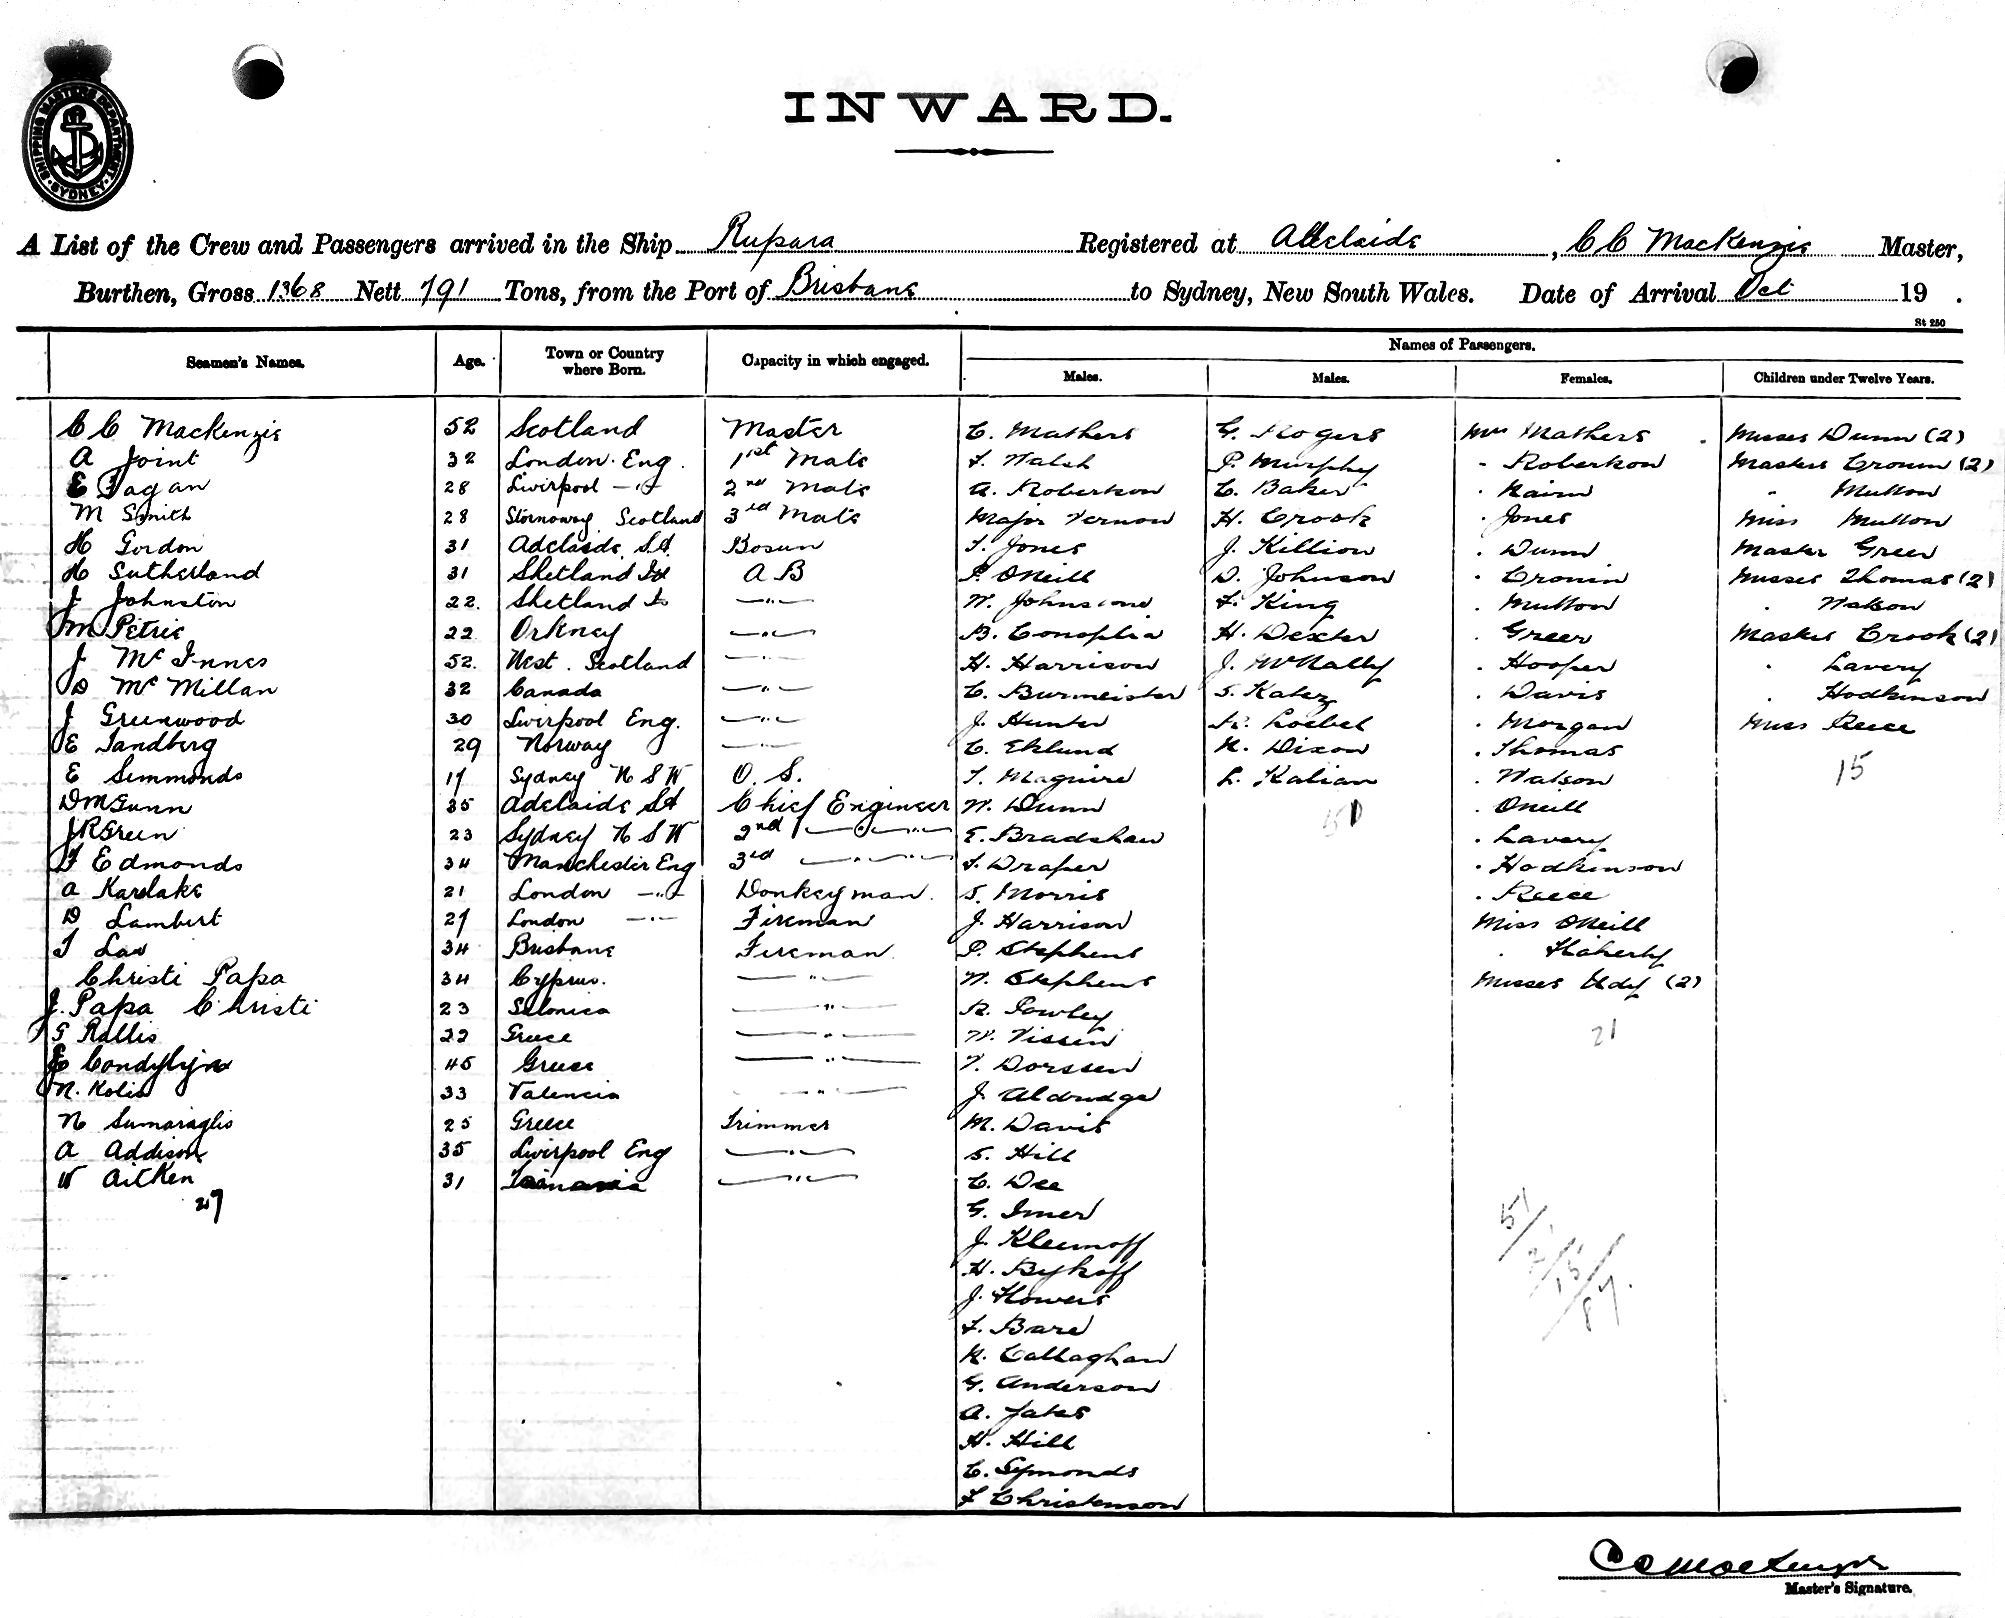 SHIPPING MASTERS DEPARTMENT
SYDNEY
INWARD.
A List of the Crew and Passengers arrived in the Ship Rupara Registered at Adelaide, C C MacKenzie Master,
Burthen, Gross 1368 Nett 791 Tons, from the Port of Brisbane to Sydney, New South Wales. Date of Arrival Oct 19 .
St 250
Seamen's Names. Age. Town or Country where Born. Capacity in which engaged. Names of Passengers.
Males. Males. Females. Children under Twelve Years.
C C MacKenzie 52 Scotland Master C. Mathers G. Rogers Mrs Mathers Misses Dunn (2)
A Joint 32 London Eng. 1st Mate F. Walsh P. Murphy " Robertson Masters Cronin (2)
E Fagan 28 Liverpool -"- 2nd Mate A. Robertson C. Baker " Nairn " Mutton
M Smith 28 Stornoway Scotland 3rd Mate Major Vernon H. Crook " Jones Miss Mutton
H Gordon 31 Adelaide S.A. Bosun T. Jones J. Killion " Dunn Master Greer
H Sutherland 31 Shetland Isd A B P. ONeill D. Johnson " Cronin Misses Thomas (2)
J Johnston 22. Shetland Is -"- W. Johnstone F. King " Mutton " Watson
M Petrie 22 Orkney -"- B. Conoplia H. Dexter " Greer Masters Crook (2)
J McInnes 52. West. Scotland -"- H. Harrison J. McNally " Hooper " Lavery
D McMillan 32 Canada -"- C. Burmeister S. Katez " Davis " Hodkinson
J Greenwood 30 Liverpool Eng. -"- J. Hunter R. Loebel " Morgan Miss Reece
E Sandberg 29 Norway -"- C. Eklund N. Dixon " Thomas
E Simmonds 17 Sydney N S W O. S. T. Maguire L. Kalian " Watson 15
D M Gunn 35 Adelaide SA Chief Engineer W. Dunn " ONeill
J R Green 23 Sydney N S W 2nd -"- E. Bradshaw " Lavery
F Edmonds 34 Manchester Eng 3rd -"- F. Draper " Hodkinson
A Karslake 21 London -"- Donkeyman. S. Morris " Reece
D Lambert 27 London -"- Fireman J. Harrison Miss ONeill
T Law 34 Brisbane Fireman P. Stephens " Flaherty
Christi Papa 34 Cyprus. -"- W. Stephens Misses Udy (2)
J. Papa Christi 23 Selonica -"- R. Powley
G Rallis 22 Greece -"- W. Vissen 21
45 Greece -"- V. Dorssen
N. Kolis 33 Valencia -"- J. Aldridge
N Sumaraglis 25 Greece Trimmer M. Davis
A Addison 35 Liverpool Eng -"- S. Hill
W Aitken 31 Tasmania -"- C. Dee
27 G. Imer
J. Kleimoff
H. Bykoff
J. Flowers
F. Bare
K. Callaghan
G. Anderson
A. Yates
H. Hill
C. Symonds
F Christenson
51/
21/
15/
87.
C C MacKenzie
Master's Signature.